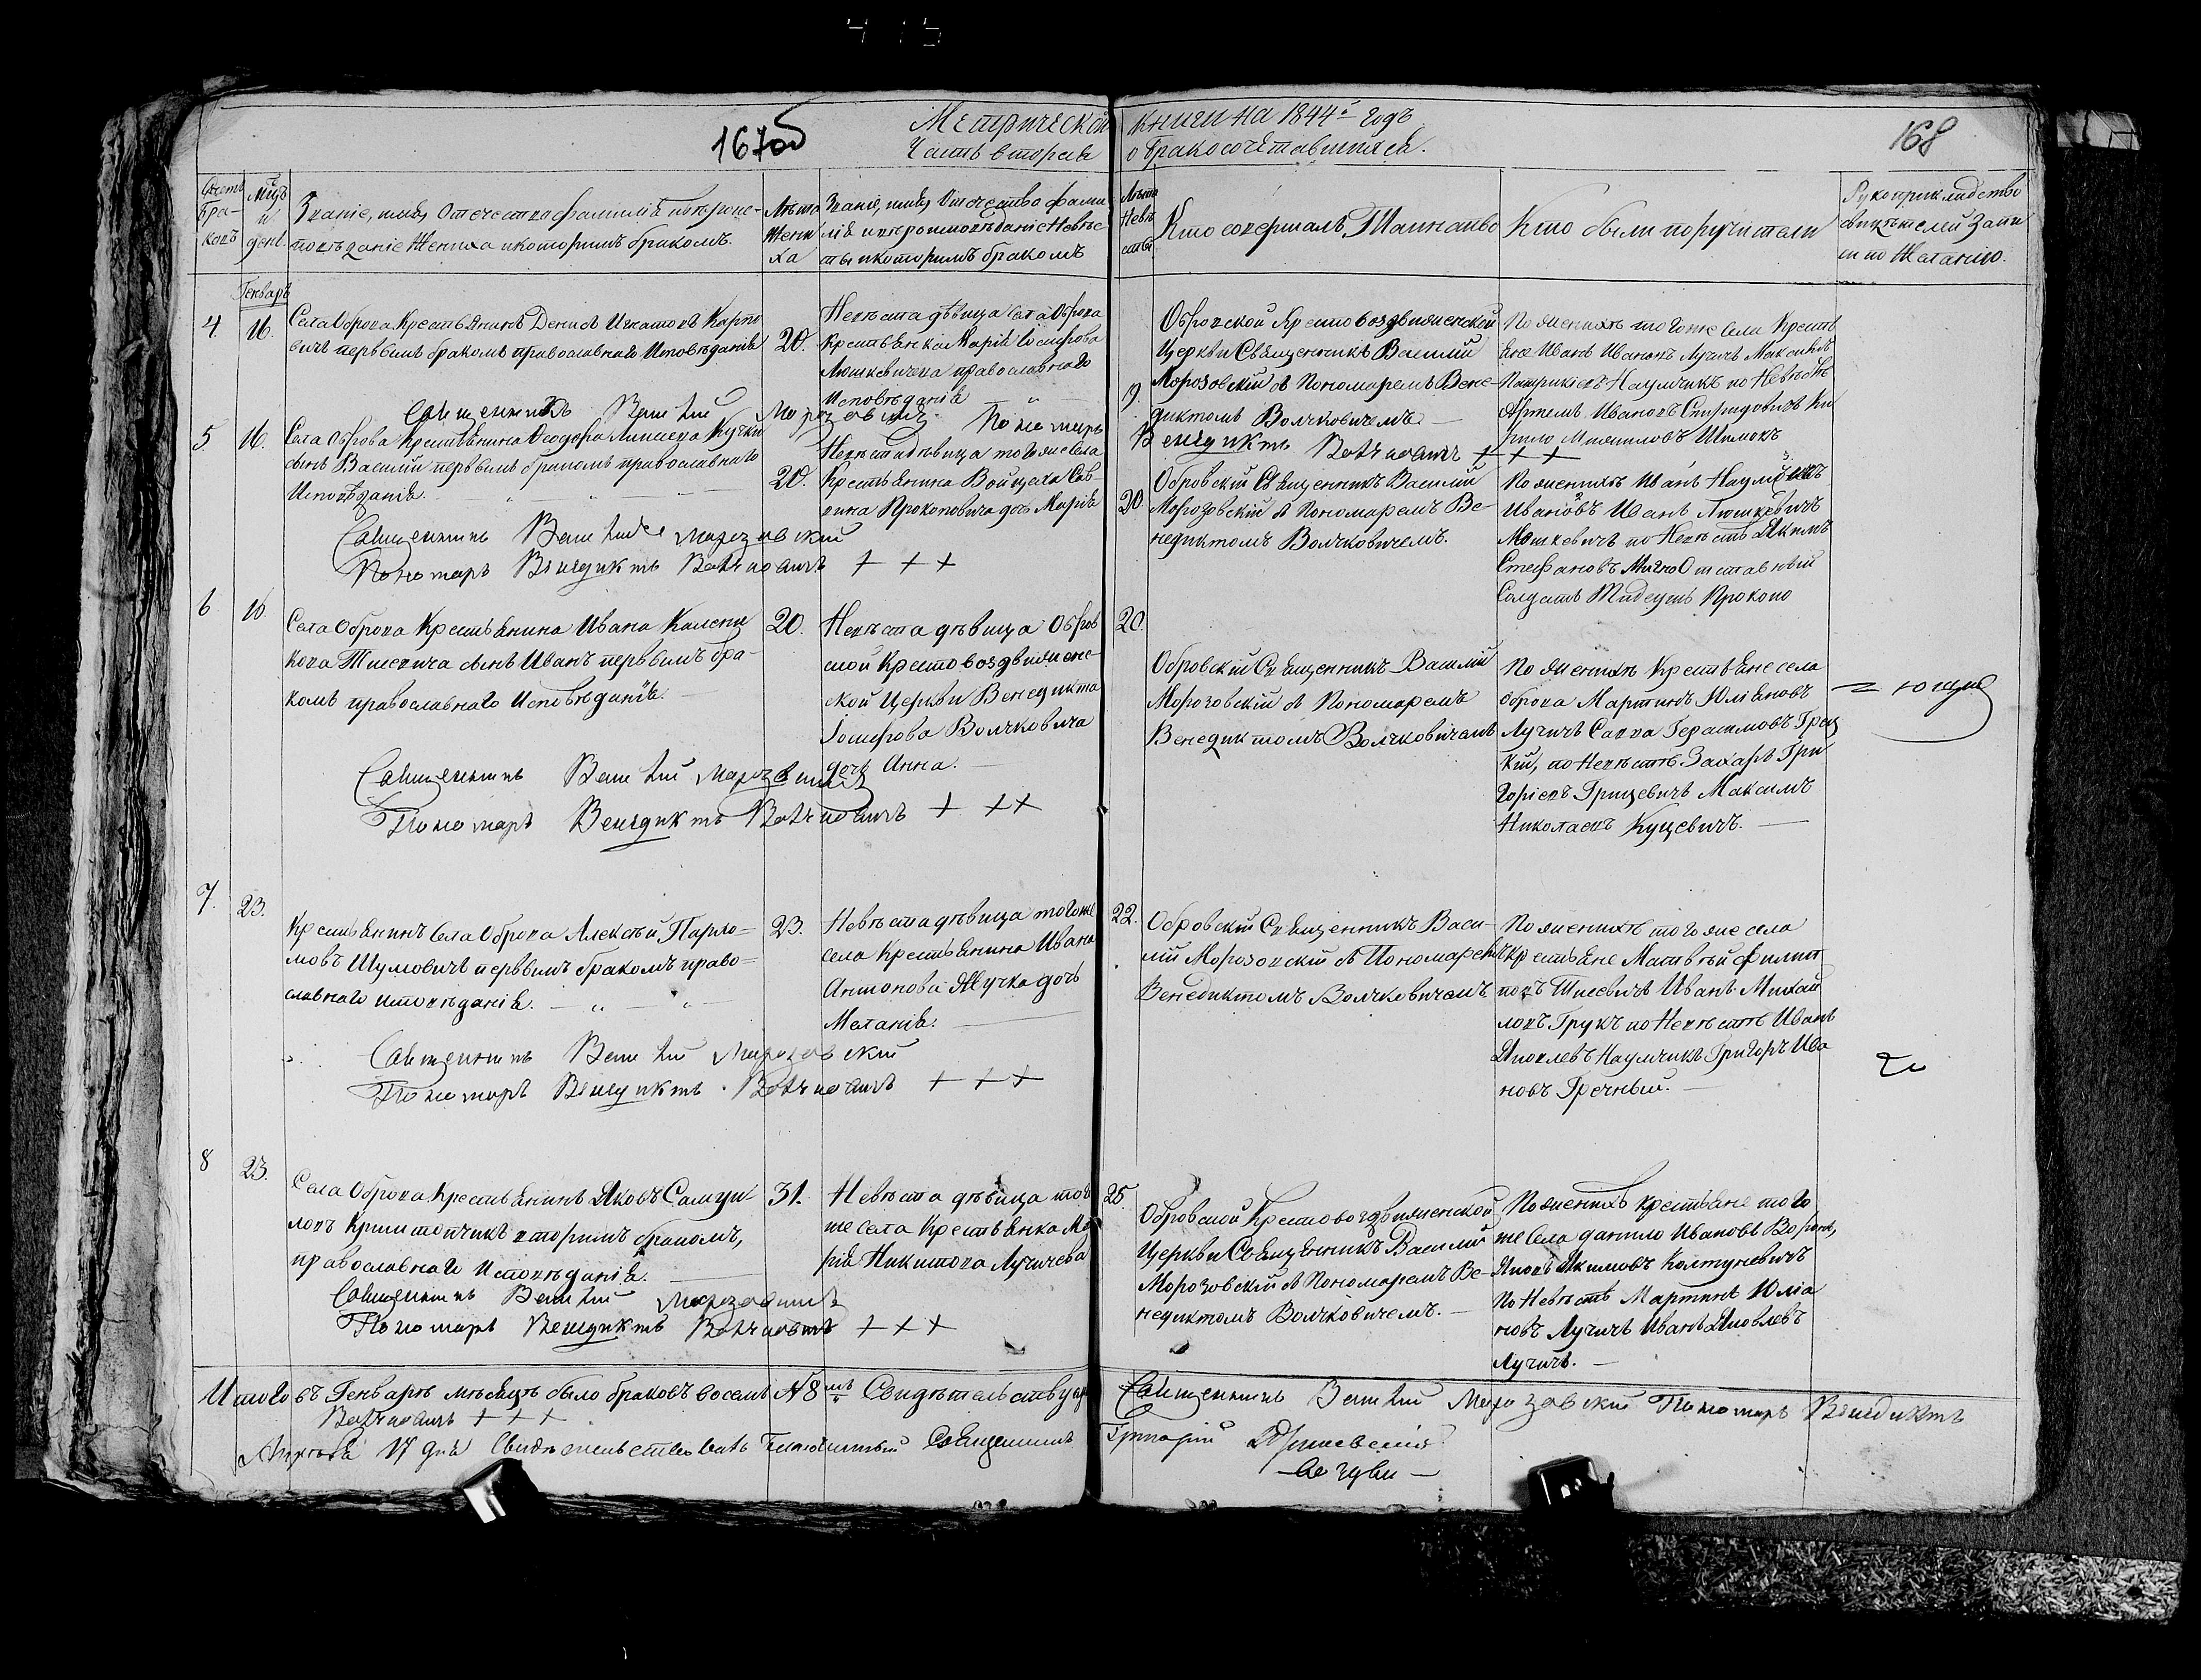 4 1 5
167об
168
Метрической книги на 1844й годъ
Часть вторая о бракосочетавшихся.
Счетъ браковъ
Мѣцъ и день
Званіе, имя, Отечество фамилія и вѣроисповѣданіе Жениха и которимъ бракомъ.
Лѣта Жениха
Званіе, имя, Отечество фамилія и вѣроисповѣданіе Невѣсты и которимъ бракомъ
Лѣта Невѣсты
Кто совершалъ Таинство
Кто были поручители
Рукоприкладство свидѣтелей записи по Желанію.
Генварь
4. 16.
Села Оброва Крестьянинъ Денисъ Игнатовъ Карпо-
вичъ первымъ бракомъ православнаго Исповѣданія
20.
Невѣста дѣвица села Оброва
Крестьянка Марія Іосифова
Люшкевичова православнаго
Исповѣданія
19
Обровской Крестовоздвиженской
Церкви Священникъ Василій
Морозовскій съ Пономаремъ Вене-
диктомъ Волчковичемъ.
По женихѣ того же села Кресть-
яне Иванъ Ивановъ Лучичъ Максимъ
Патрикіевъ Наумчикъ по Невѣстѣ
Артемъ Ивановъ Спиридовичъ Ки
рило Михиловъ Шимокъ
Священникъ Василий Морозовский Пономарь Венедиктъ Волчковичъ + + +
5 16.
Села Оброва Крестьянина Ѳеодора Линцева Кучки
сынъ Василій первымъ бракомъ православнаго
Исповѣданія.
20.
Невѣста дѣвица того же села
Крестьянина Войцеха Сав-
вина Прокоповича дочь Марія
20.
Обровскій Священникъ Василій
Морозовскій съ Пономаремъ Ве-
недиктомъ Волчковичемъ.
По женихѣ Иванъ Наумчикъ
Ивановъ Иванъ Люшкевичъ
Мошкевичъ по Невѣстѣ Якимъ
Стефановъ Мично Отставный
Солдатъ Тадеушъ Прокопо
Священникъ Василий Морозовский
Пономарь Венедиктъ Волчковичъ + + +
6 16
Села Оброва Крестьянина Ивана Калени
кова Тисевича сынъ Иванъ первымъ бра-
комъ православнаго Исповѣданія.
20.
Невѣста дѣвица Обров
ской Крестовоздвижен-
ской Церкви Венедикта
Іосифова Волчковича
дочь Анна.
20.
Обровскій Священникъ Василій
Морозовскій съ Пономаремъ
Венедиктомъ Волчковичемъ
По женихѣ Крестьяне села
Оброва Мартинъ Юліановъ
Лучичъ Савва Герасимовъ Гриц
кій, по Невѣстѣ Захаръ Гри
горіевъ Грицевичъ Максимъ
Николаевъ Куцевичъ.
= ющие
Священникъ Василий Морозовский
Пономарь Венедиктъ Волчковичъ + ++
7. 23.
Крестьянинъ Села Оброва Алексѣй Пархо-
мовъ Шумовичъ первымъ бракомъ право-
славнаго исповѣданія.
23.
Невѣста дѣвица того же
села Крестьянина Ивана
Антонова Жучка дочь
Меланія.
22.
Обровскій Священникъ Васи-
лій Морозовскій съ Пономаремъ
Венедиктомъ Волчковичемъ
По женихѣ того же села
крестьяне Матвѣй Филип
повъ Тисевичъ Иванъ Михай
ловъ Грукъ по Невѣстѣ Иванъ
Яковлевъ Наумчикъ Григоръ Ива
новъ Гречный.
Священникъ Василий Морозовский
Пономарь Венедиктъ Волчковичъ + + +
8 23.
Села Оброва Крестьянинъ Яковъ Самуи
ловъ Криштопчикъ вторимъ бракомъ,
православнаго Исповѣданія.
31.
Невѣста дѣвица того
же села Крестьянка Ма
рія Никитова Лучичева
25.
Обровской Крестовоздвиженской
Церкви Священникъ Василій
Морозовскій съ Пономаремъ Ве-
недиктомъ Волчковичемъ.
По женихѣ крестьяне того
же Села Данило Ивановъ Воронъ,
Яковъ Якимовъ Колтуневичъ
По Невѣстѣ Мартинъ Юліа
новъ Лучичъ Иванъ Яковлевъ
Лучичъ.
Священникъ Василий Морозовский
Пономарь Венедиктъ Волчковичъ + + +
Итого въ Генварѣ мѣсяцѣ было браковъ восемь № 8мь Свидѣтельствуемъ Священникъ Василий Морозовский Пономарь Венедиктъ
Волчковичъ + + +
17 дня Свидѣтельствовалъ Благочинный Священникъ Григорій